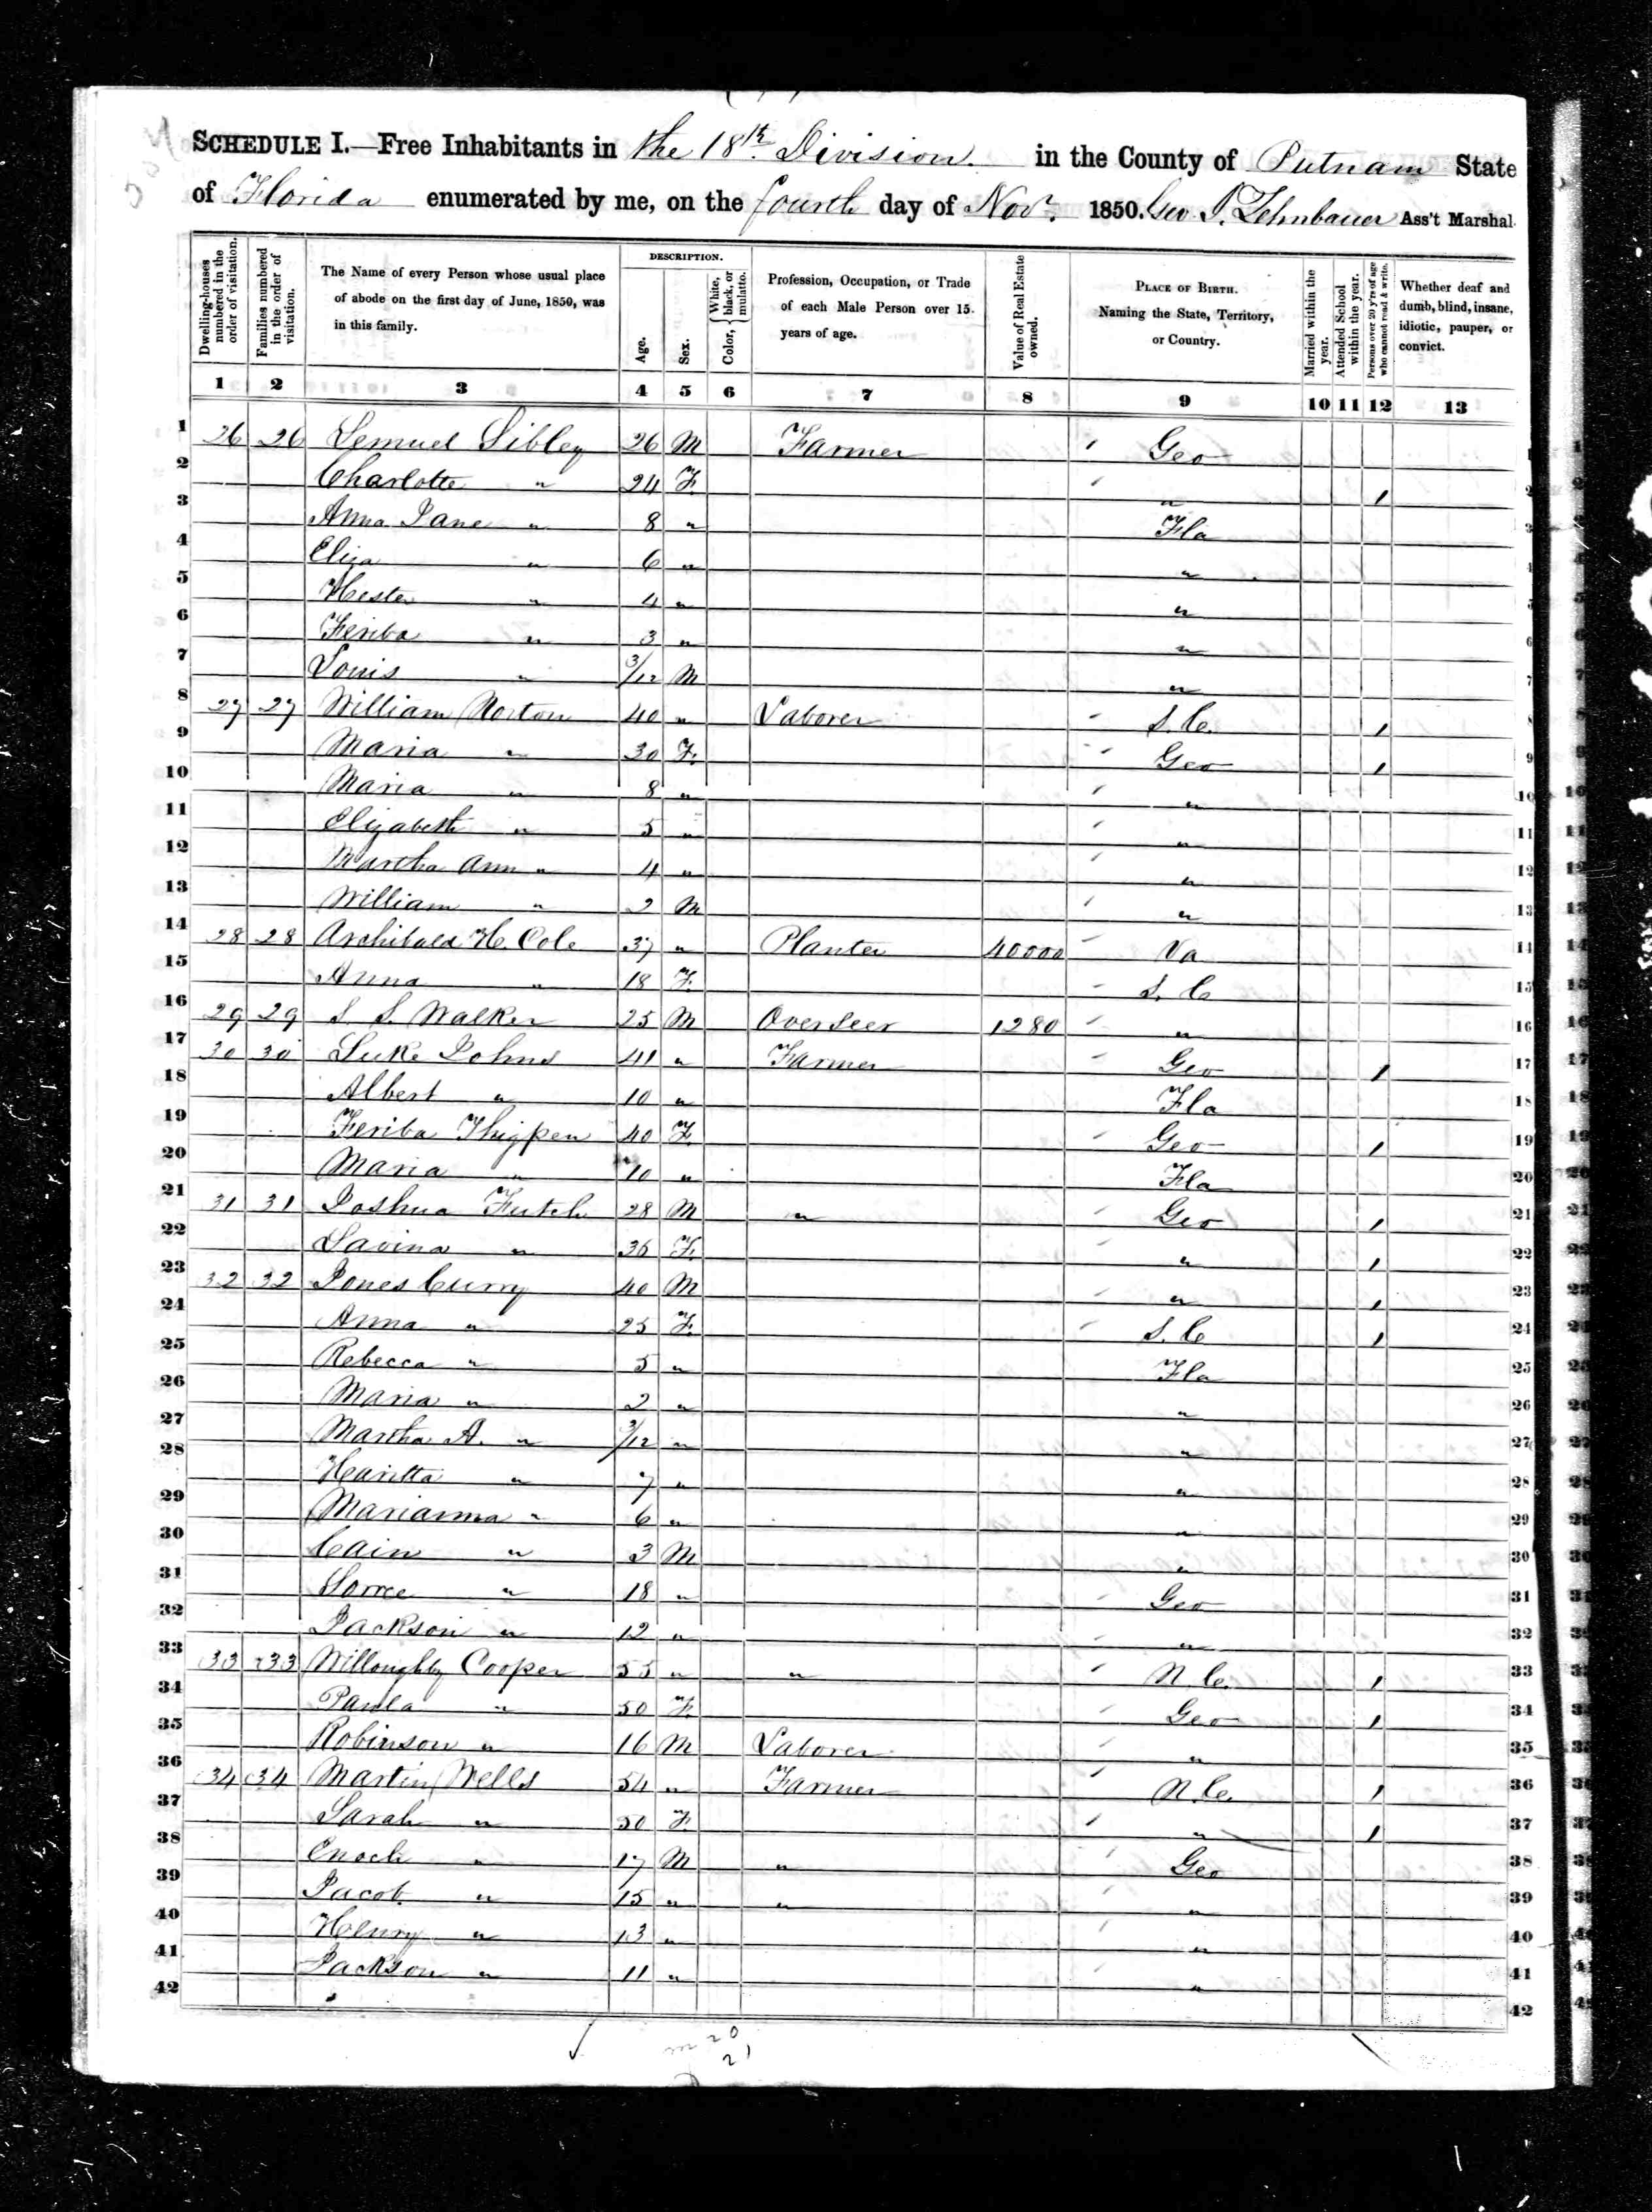 SCHEDULE I.—Free Inhabitants in the 18th. Division. in the County of Putnam State
of Florida enumerated by me, on the fourth day of Nov. 1850. Geo. I. Zehnbauer Ass't Marshal.
Dwelling-houses numbered in the order of visitation.
Families numbered in the order of visitation.
The Name of every Person whose usual place of abode on the first day of June, 1850, was in this family.
DESCRIPTION.
Age.
Sex.
Color, { White, black, or mulatto.
Profession, Occupation, or Trade of each Male Person over 15 years of age.
Value of Real Estate owned.
PLACE OF BIRTH. Naming the State, Territory, or Country.
Married within the year.
Attended School within the year.
Persons over 20 y'rs of age who cannot read & write.
Whether deaf and dumb, blind, insane, idiotic, pauper, or convict.
1 2 3 4 5 6 7 8 9 10 11 12 13
1 26 26 Lemuel Sibley 26 M Farmer Geo 1
2 Charlotte " 24 F. " / 2
3 Anna Jane " 8 " Fla 3
4 Eliza " 6 " " 4
5 Hester " 4 " " 5
6 Feriba " 3 " " 6
7 Louis " 3/12 M " 7
8 27 27 William Norton 40 " Laborer S. C. / 8
9 Maria " 30 F. Geo / 9
10 Maria " 8 " " 10
11 Elizabeth " 5 " " 11
12 Martha Ann " 4 " " 12
13 William " 2 M " 13
14 28 28 Archibald H. Cole 37 " Planter 40000 Va 14
15 Anna " 18 F. S. C 15
16 29 29 S. S. Walker 25 M Overseer 1280 " 16
17 30 30 Luke Johns 41 " Farmer Geo / 17
18 Albert " 10 " Fla 18
19 Feriba Thigpen 40 F. Geo / 19
20 Maria " 10 " Fla 20
21 31 31 Joshua Futch 28 M " Geo / 21
22 Lavina " 36 F. " / 22
23 32 32 Jones Curry 40 M " / 23
24 Anna " 25 F. S. C / 24
25 Rebecca " 5 " Fla 25
26 Maria " 2 " " 26
27 Martha A. " 3/12 " " 27
28 Haritta " 7 " " 28
29 Marianna " 6 " " 29
30 Cain " 3 M " 30
31 " 18 " Geo 31
32 Jackson " 12 " " 32
33 33 33 Willoughby Cooper 55 " " N. C. / 33
34 " 50 F. Geo / 34
35 Robinson " 16 M Laborer " 35
36 34 34 Martin Wells 54 " Farmer N. C. / 36
37 Sarah " 50 F. " / 37
38 Enoch " 17 M " Geo 38
39 Jacob " 15 " " " 39
40 Henry " 13 " " 40
41 Jackson " 11 " " 41
42 42
m 20
21